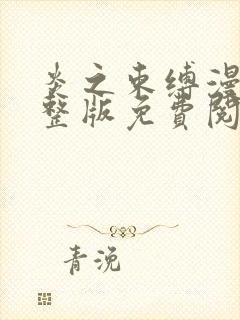 炎之束缚漫
整版免费阅
青浼